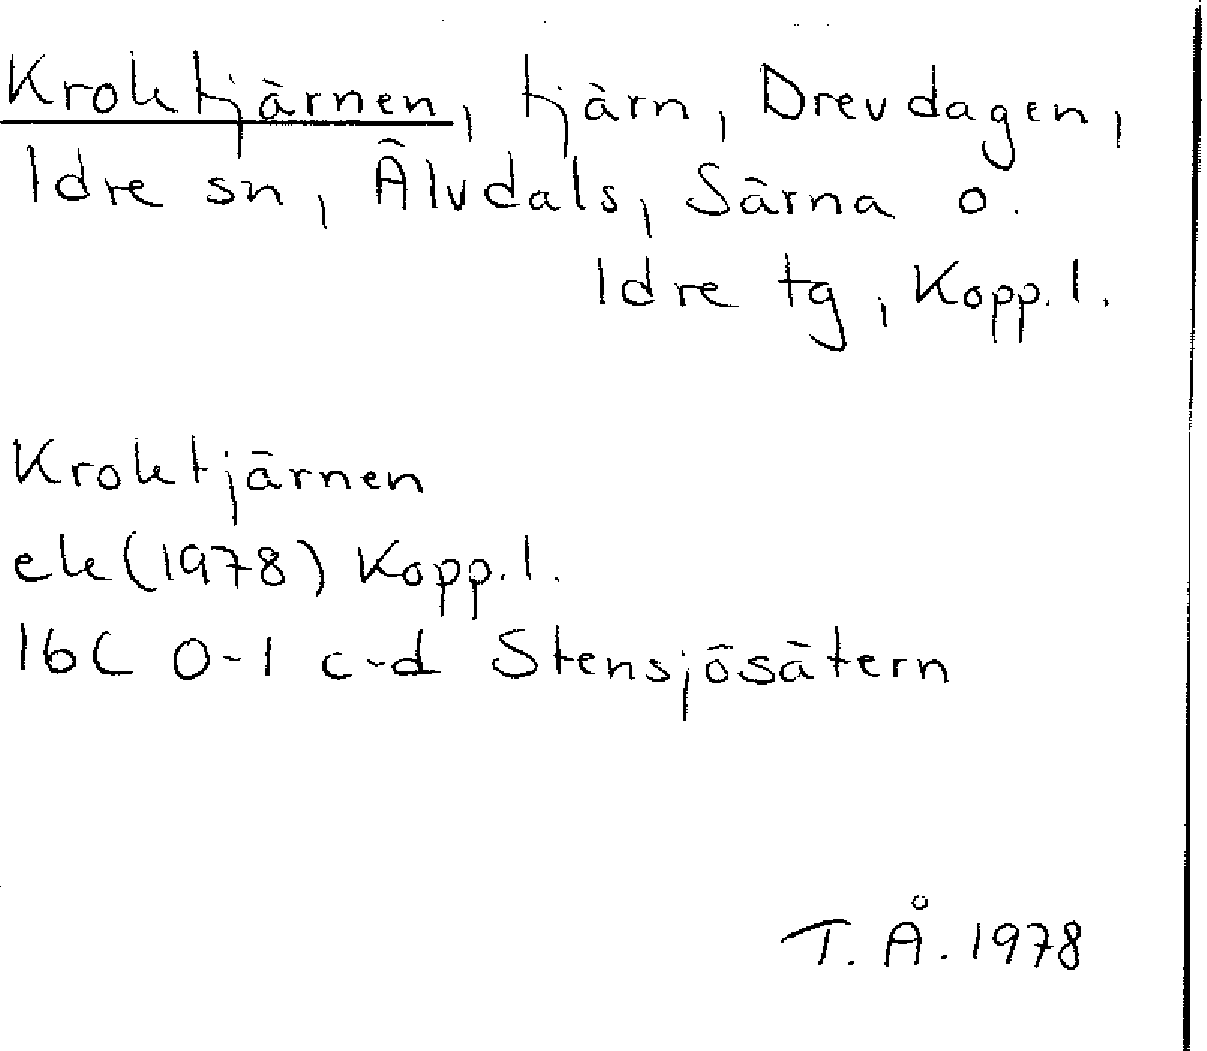 Kroktjärnen, tjärn, Drevdagen,
Idre sn, Älvdals, Särna o.
Idre tg, Kopp. l.
Kroktjärnen
ek (1978) Kopp. l.
16C 0-1 c-d Stensjösätern
T. Å. 1978